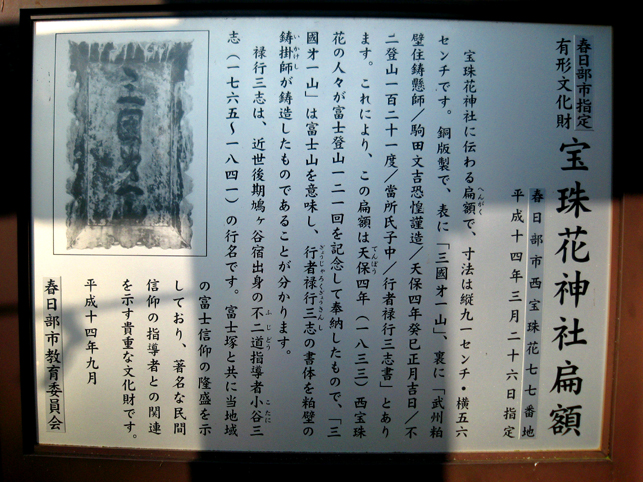 春日部市指定
有形文化財
宝珠花神社扁額
春日部市西宝珠花七七番地
平成十四年三月二十六日指定
宝珠花神社に伝わる扁額で、寸法は縦九一センチ・横五六
へんがく
センチです。銅版製で、表に「三國㐧一山」、裏に「武州粕
壁住鋳懸師／駒田文吉恐惶謹造／天保四年癸巳正月吉日／不
二登山一百二十一度／當所氏子中／行者禄行三志書」とあり
ます。これにより、この扁額は天保四年（一八三三）西宝珠
てんぽう
花の人々が富士登山一二一回を記念して奉納したもので、「三
國㐧一山」は富士山を意味し、行者禄行三志の書体を粕壁の
ぎょうじゃろくぎょうさんし
鋳掛師が鋳造したものであることが分かります。
いかけし
禄行三志は、近世後期鳩ヶ谷宿出身の不二道指導者小谷三
ふじどう
こたに
志（一七六五～一八四一）の行名です。富士塚と共に当地域
の富士信仰の隆盛を示
しており、著名な民間
信仰の指導者との関連
を示す貴重な文化財です。
平成十四年九月
春日部市教育委員会